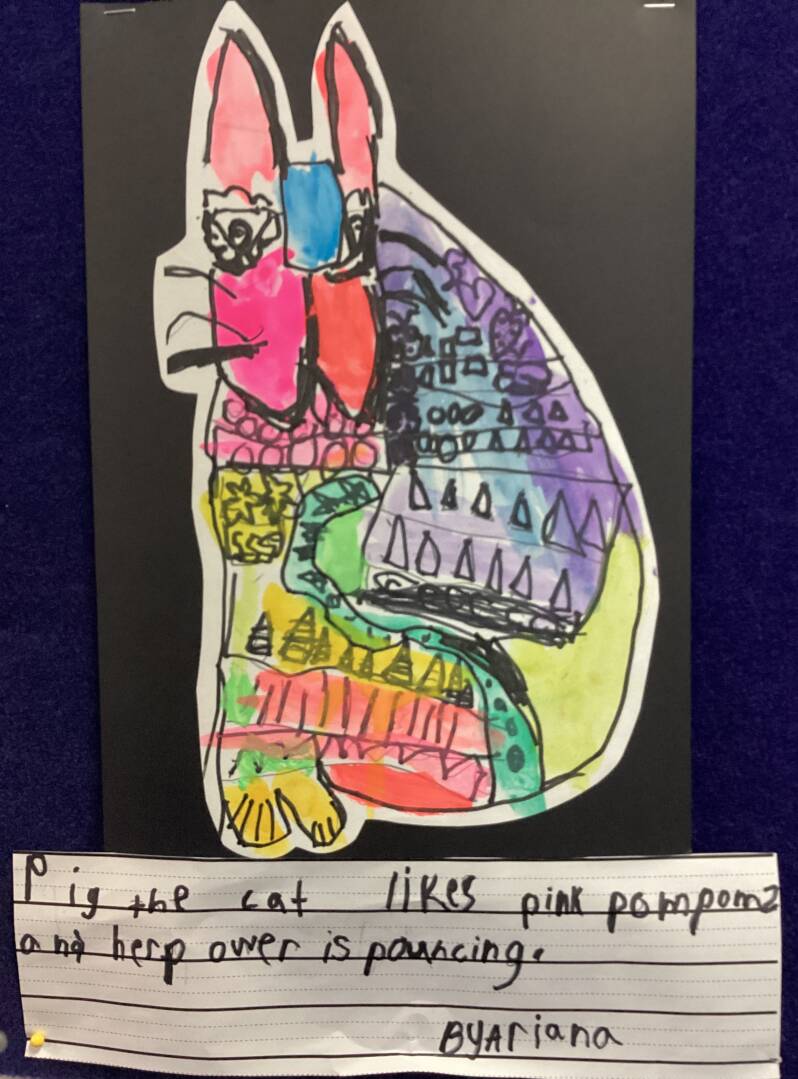 Pig the cat likes pink pompoms
and herp ower is pouncing.
By Ariana